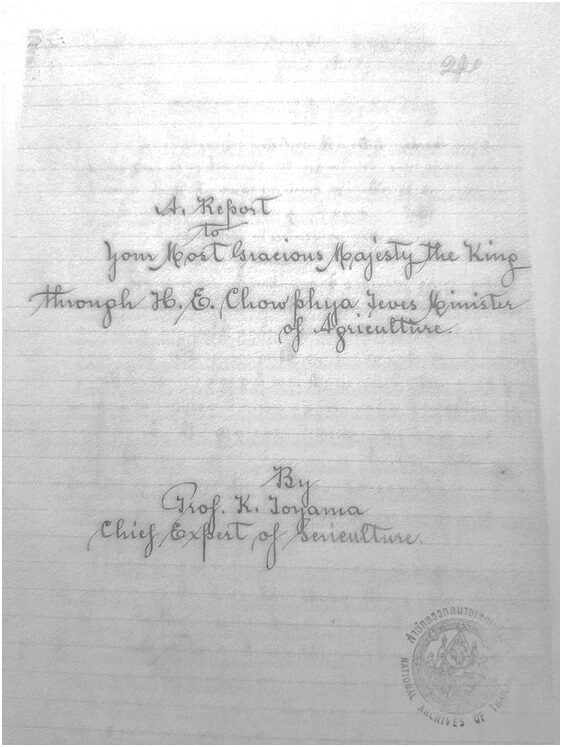 A. Report
to
Your Most Gracious Majesty the King
through H. E. Chow phya Teves Minister
of Agriculture.
By
Prof. K. Toyama
Chief Expert of Sericulture.
NATIONAL ARCHIVES OF